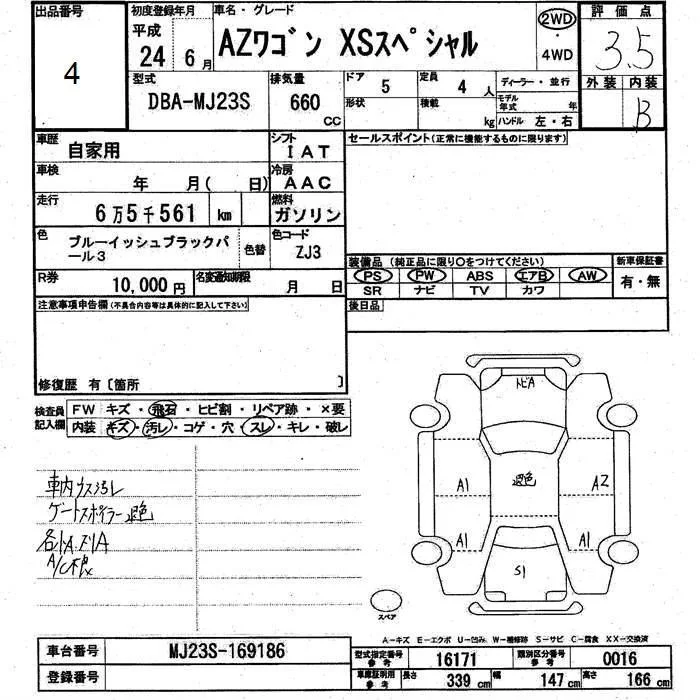 出品番号
4
初度登録年月
平成
24 6月
車名・グレード
AZワゴン XSスペシャル
2WD
・
4WD
評価点
3.5
型式
DBA-MJ23S
排気量
660
CC
ドア 5
定員 4 人
形状
積載 kg
ディーラー・並行
モデル年式 年
ハンドル 左・右
外装 内装
B
車歴
自家用
シフト
IAT
車検
年 月( 日)
冷房
AAC
走行
6万5千561 km
燃料
ガソリン
色
ブルーイッシュブラックパール3
色替
色コード
ZJ3
R券
10,000円
名変通知期限
月 日
セールスポイント(正常に機能するものに限ります)
装備品(純正品に限り○をつけてください)
PS PW ABS エアB AW
SR ナビ TV カワ
新車保証書
有・無
後日品
注意事項申告欄(不具合内容等は具体的に記入して下さい)
修復歴 有〔箇所 〕
検査員記入欄
FW キズ・飛石・ヒビ割・リペア跡・×要
内装 キズ・汚レ・コゲ・穴・スレ・キレ・破レ
車内ウス汚レ
ゲートスポイラー退色
トビA
退色
A1
A2
A1
A1
S1
スペア
A-キズ E-エクボ U-凹み W-補修跡 S-サビ C-腐食 XX-交換済
車台番号
MJ23S-169186
登録番号
型式指定番号
参考
16171
類別区分番号
参考
0016
車庫証明用
参考
長さ 339 cm
幅 147 cm
高さ 166 cm